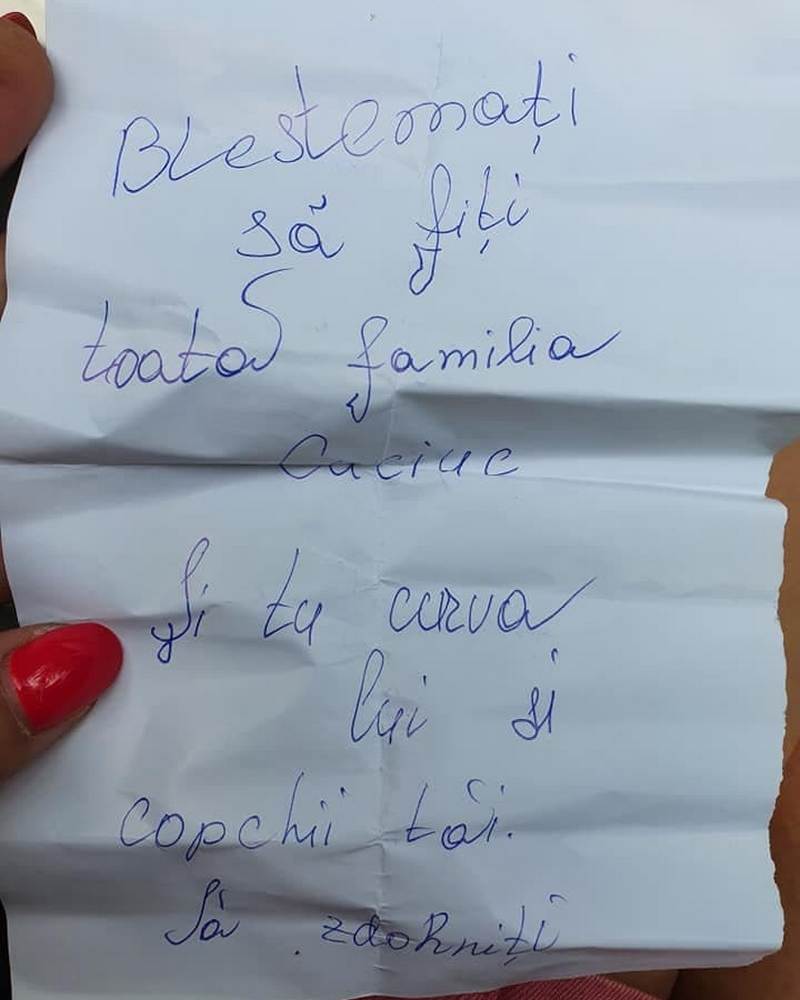 Blestemați
să fiți
toată familia
Cuciuc
Și tu curva
lui și
copchii tăi.
Să zdohniți